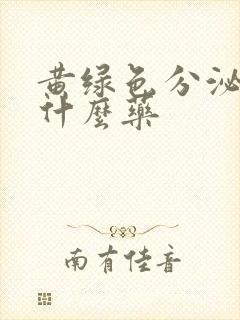 黄绿色分泌
什麼藥
南有佳音